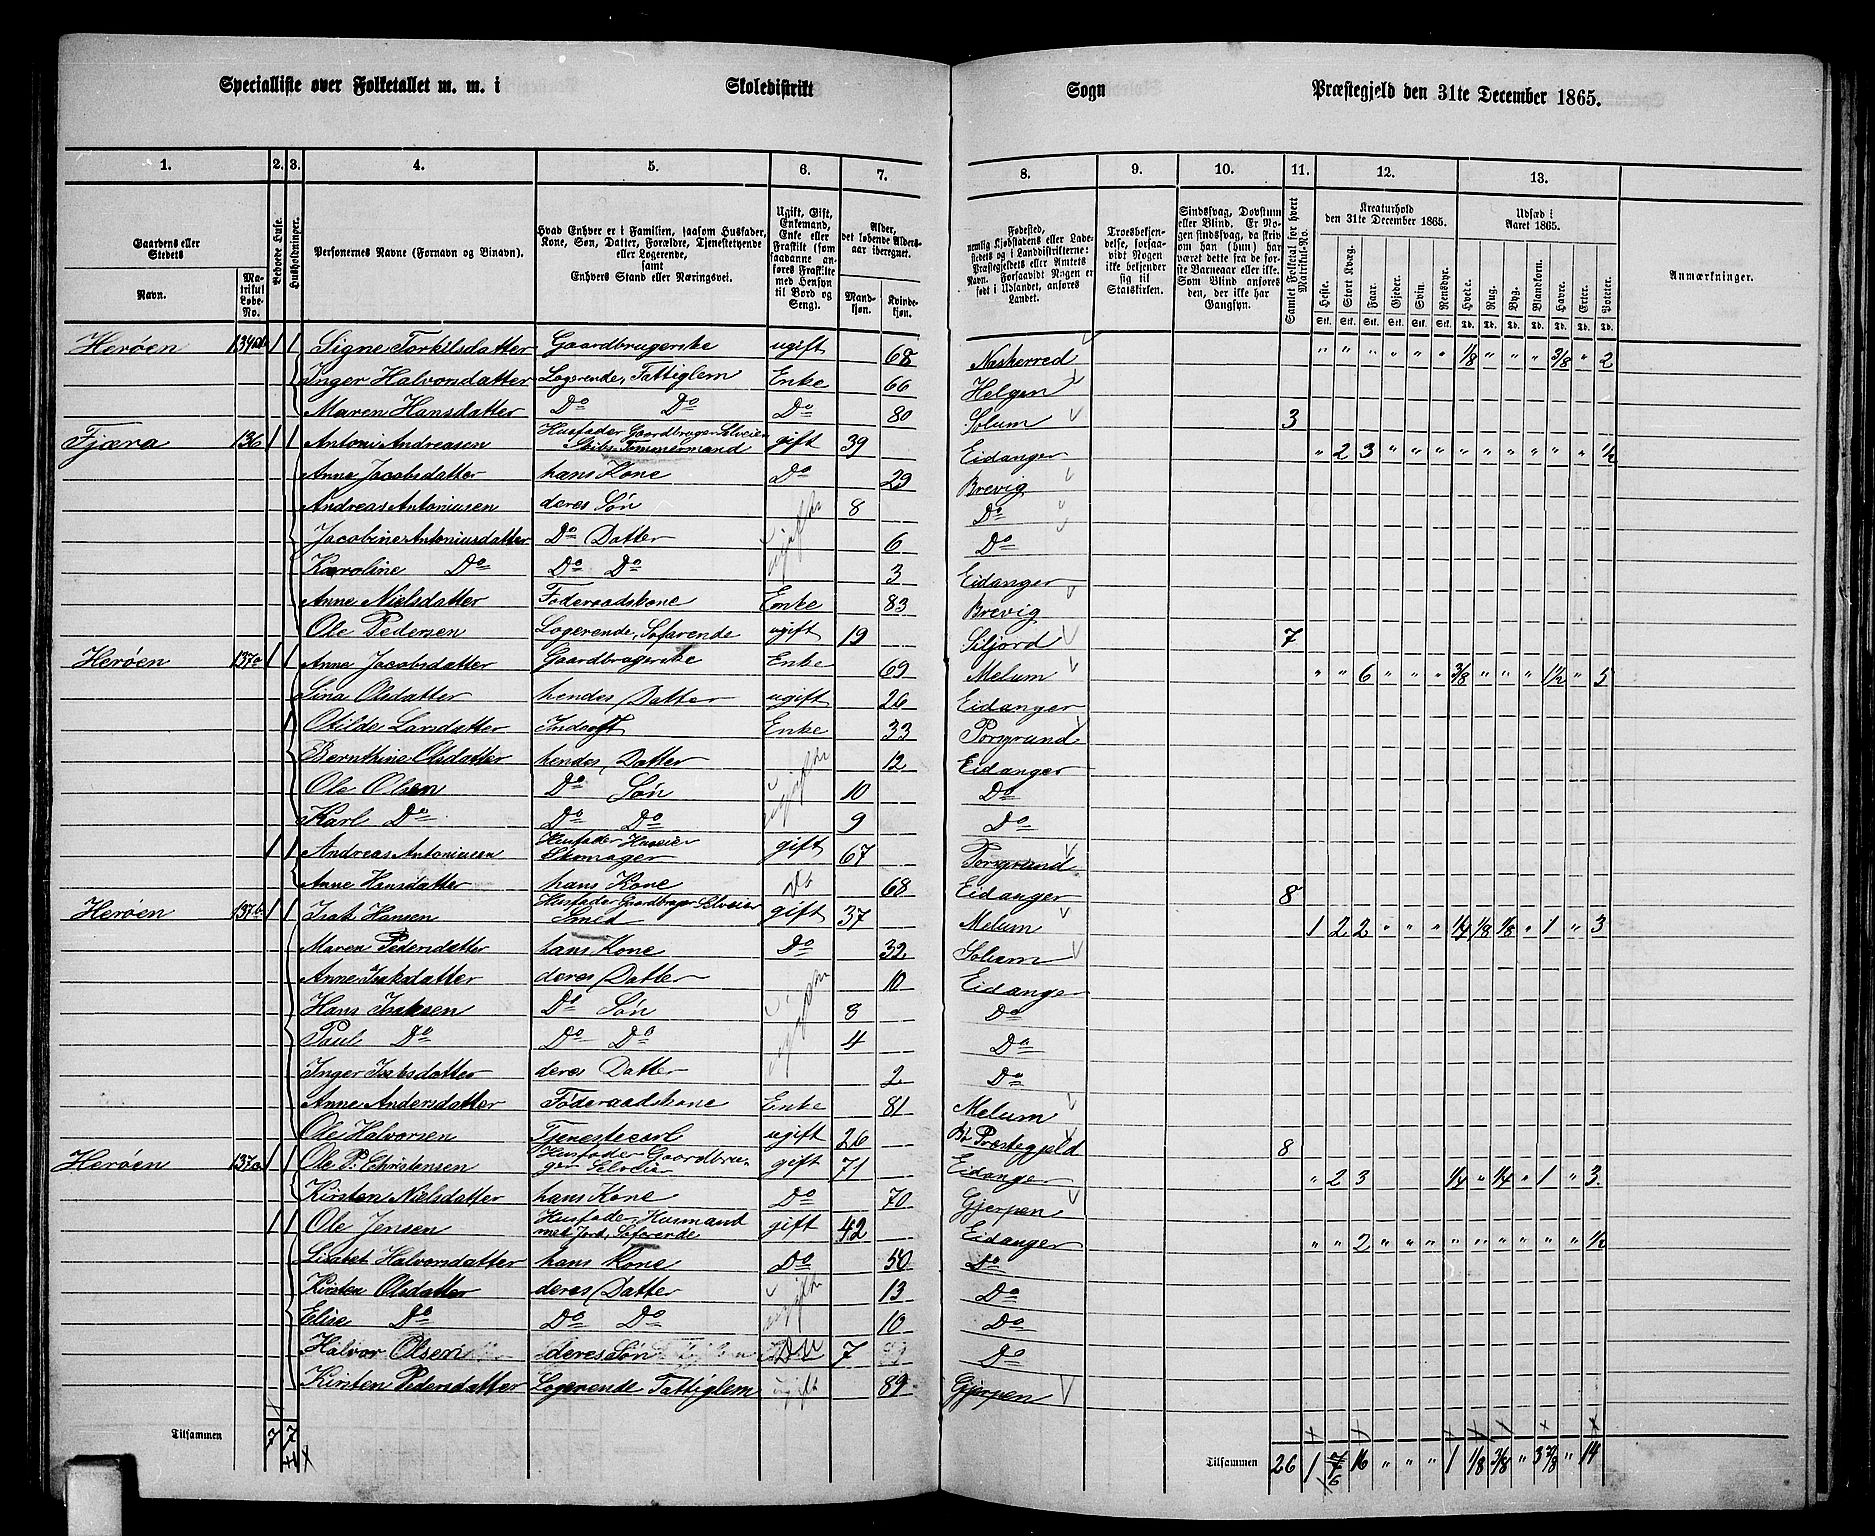 Specialliste over Folketallet m. m. i Skoledistrikt Sogn Præstegjeld den 31te December 1865.
1. 2. 3. 4. 5. 6. 7. 8. 9. 10. 11. 12. 13.
Gaardens eller Stedets Navn. Matrikul Løbe-No.
Beboede Huse.
Husholdninger.
Personernes Navne (Fornavn og Binavn).
Hvad Enhver er i Familien, saasom Husfader, Kone, Søn, Datter, Forældre, Tjenestetyende eller Logerende, samt Enhvers Stand eller Næringsvei.
Ugift, Gift, Enkemand, Enke eller Fraskilt (som saadanne anføres Fraskilte med Hensyn til Bord og Seng).
Alder, det løbende Alders-aar iberegnet. Mandkjøn. Kvindekjøn.
Fødested, nemlig Kjøbstadens eller Ladestedets og i Landdistrikterne: Præstegjeldets eller Amtets Navn. Forsaavidt Nogen er født i Udlandet, anføres Landet.
Troesbekjendelse, forsaavidt Nogen ikke bekjender sig til Statskirken.
Sindssvag, Døvstum eller Blind. Er Nogen sindssvag, da skrives han (hun) har været dette fra før Barneaar eller ikke. Som Blind anføres den, der ikke har Gangsyn.
Samlet Folketal for hvert Matrikul-No.
Kreaturhold den 31te December 1865. Heste. Stort Kvæg. Faar. Gjeder. Svin. Rensdyr.
Udsæd i Aaret 1865. Hvede. Rug. Byg. Blandkorn. Havre. Erter. Poteter.
Anmærkninger.
Herøen 1 1 Signe Torkilsdatter Gaardbrugerske ugift 68 Naskerred " " " " " " 1/8 " " " 3/8 " 2
Inger Halvorsdatter Logerende, Fattiglem Enke 66 Helgen
Maren Hansdatter Do Do Do 80 Solum 3
Fjæra 136 1 1 Antoni Andreasen Husfader Gaardbruger Selveier Skibs Tømmermand gift 39 Eidanger " 2 3 " " " " " " " " " 1/2
Anne Jacobsdatter hans Kone Do 29 Brevig
Andreas Antoniusen deres Søn ugifte 8 Do
Jacobine Antoniusdatter Do Datter 6 Do
Karoline Do Do Do 3 Eidanger
Anne Nielsdatter Føderaadskone Enke 83 Brevig
Ole Pedersen Logerende, Søfarende ugift 19 Siljord 7
Herøen 137a 1 1 Anne Jacobsdatter Gaardbrugerske Enke 69 Melum " " 6 " " " 3/8 " " " 1 1/2 " 5
Lina Olsdatter hendes Datter ugift 26 Eidanger
Otilde Larsdatter Inderst Enke 33 Porsgrund
Bernthine Olsdatter hendes Datter ugifte 12 Eidanger
Ole Olsen Do Søn 10 Do
Karl Do Do Do 9 Do
1 1 Andreas Antoniusen Husfader Huseier Skomager gift 67 Porsgrund
Anne Hansdatter hans Kone Do 68 Eidanger 8
Herøen 137b 1 1 Isak Hansen Husfader Gaardbruger Selveier Smed gift 37 Melum 1 2 2 " " " 1/4 1/8 1/8 " 1 " 3
Maren Pedersdatter hans Kone Do 32 Solum
Anne Isaksdatter deres Datter 10 Eidanger
Hans Isaksen Do Søn 8 Do
Paul Do Do Do 4 Do
Inger Isaksdatter deres Datter 2 Do
Anne Andersdatter Føderaadskone Enke 81 Melum
Ole Halvorsen Tjenestecarl ugift 26 Præstegjeld 8
Herøen 1 1 Ole P. Christensen Husfader Gaardbruger Selveier gift 71 Eidanger " 2 3 1/4 " 1/4 " 1 " 3
Kirsten Nielsdatter hans Kone Do 70 Gjerpen
1 1 Ole Jensen Husfader Husmand med Jord, Søfarende gift 42 Eidanger " " 2 " " " " " " " " " 1/2
Lisabet Halvorsdatter hans Kone Do 50 Do
Kirsten Olsdatter deres Datter ugifte 13 Do
Elise Do Do Do 10 Do
Halvor Olsen deres Søn 7 Do
Kirsten Pedersdatter Logerende Fattiglem ugift 89 Gjerpen
Tilsammen 7 7
Tilsammen 26 1 16 " " " 1 1/8 3/8 " 3 7/8 " 14